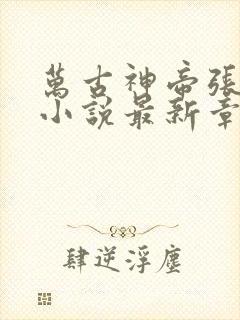 萬古神帝張
小說最新章
肆逆浮塵